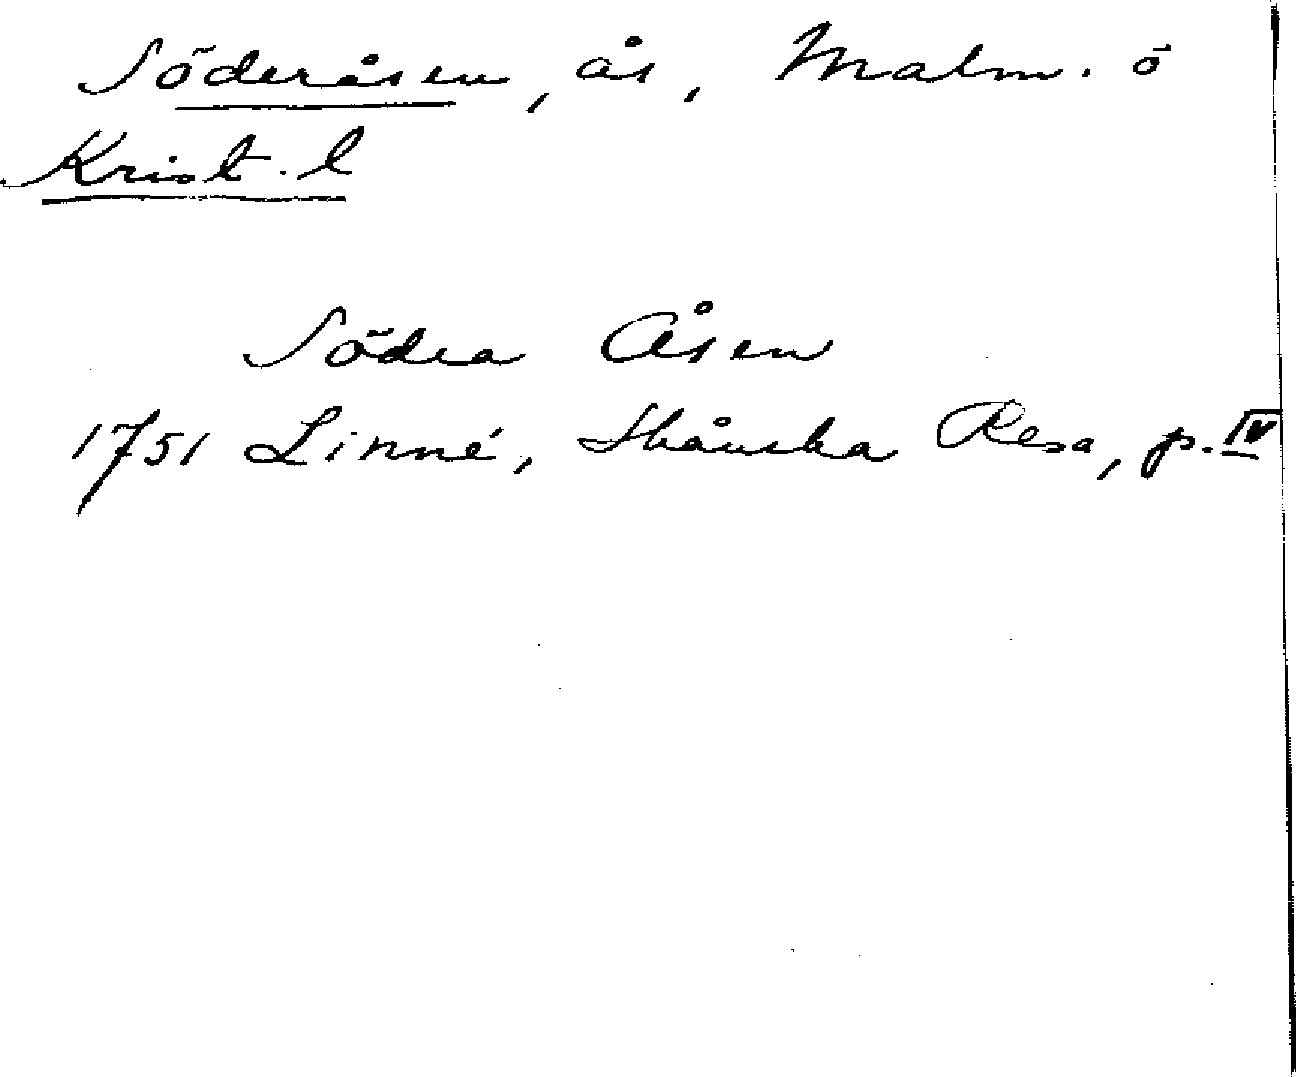 Söderåsen, ås, Malm. o
Krist. l
Södra Åsen
1751 Linné, Skånska Resa, p. IV